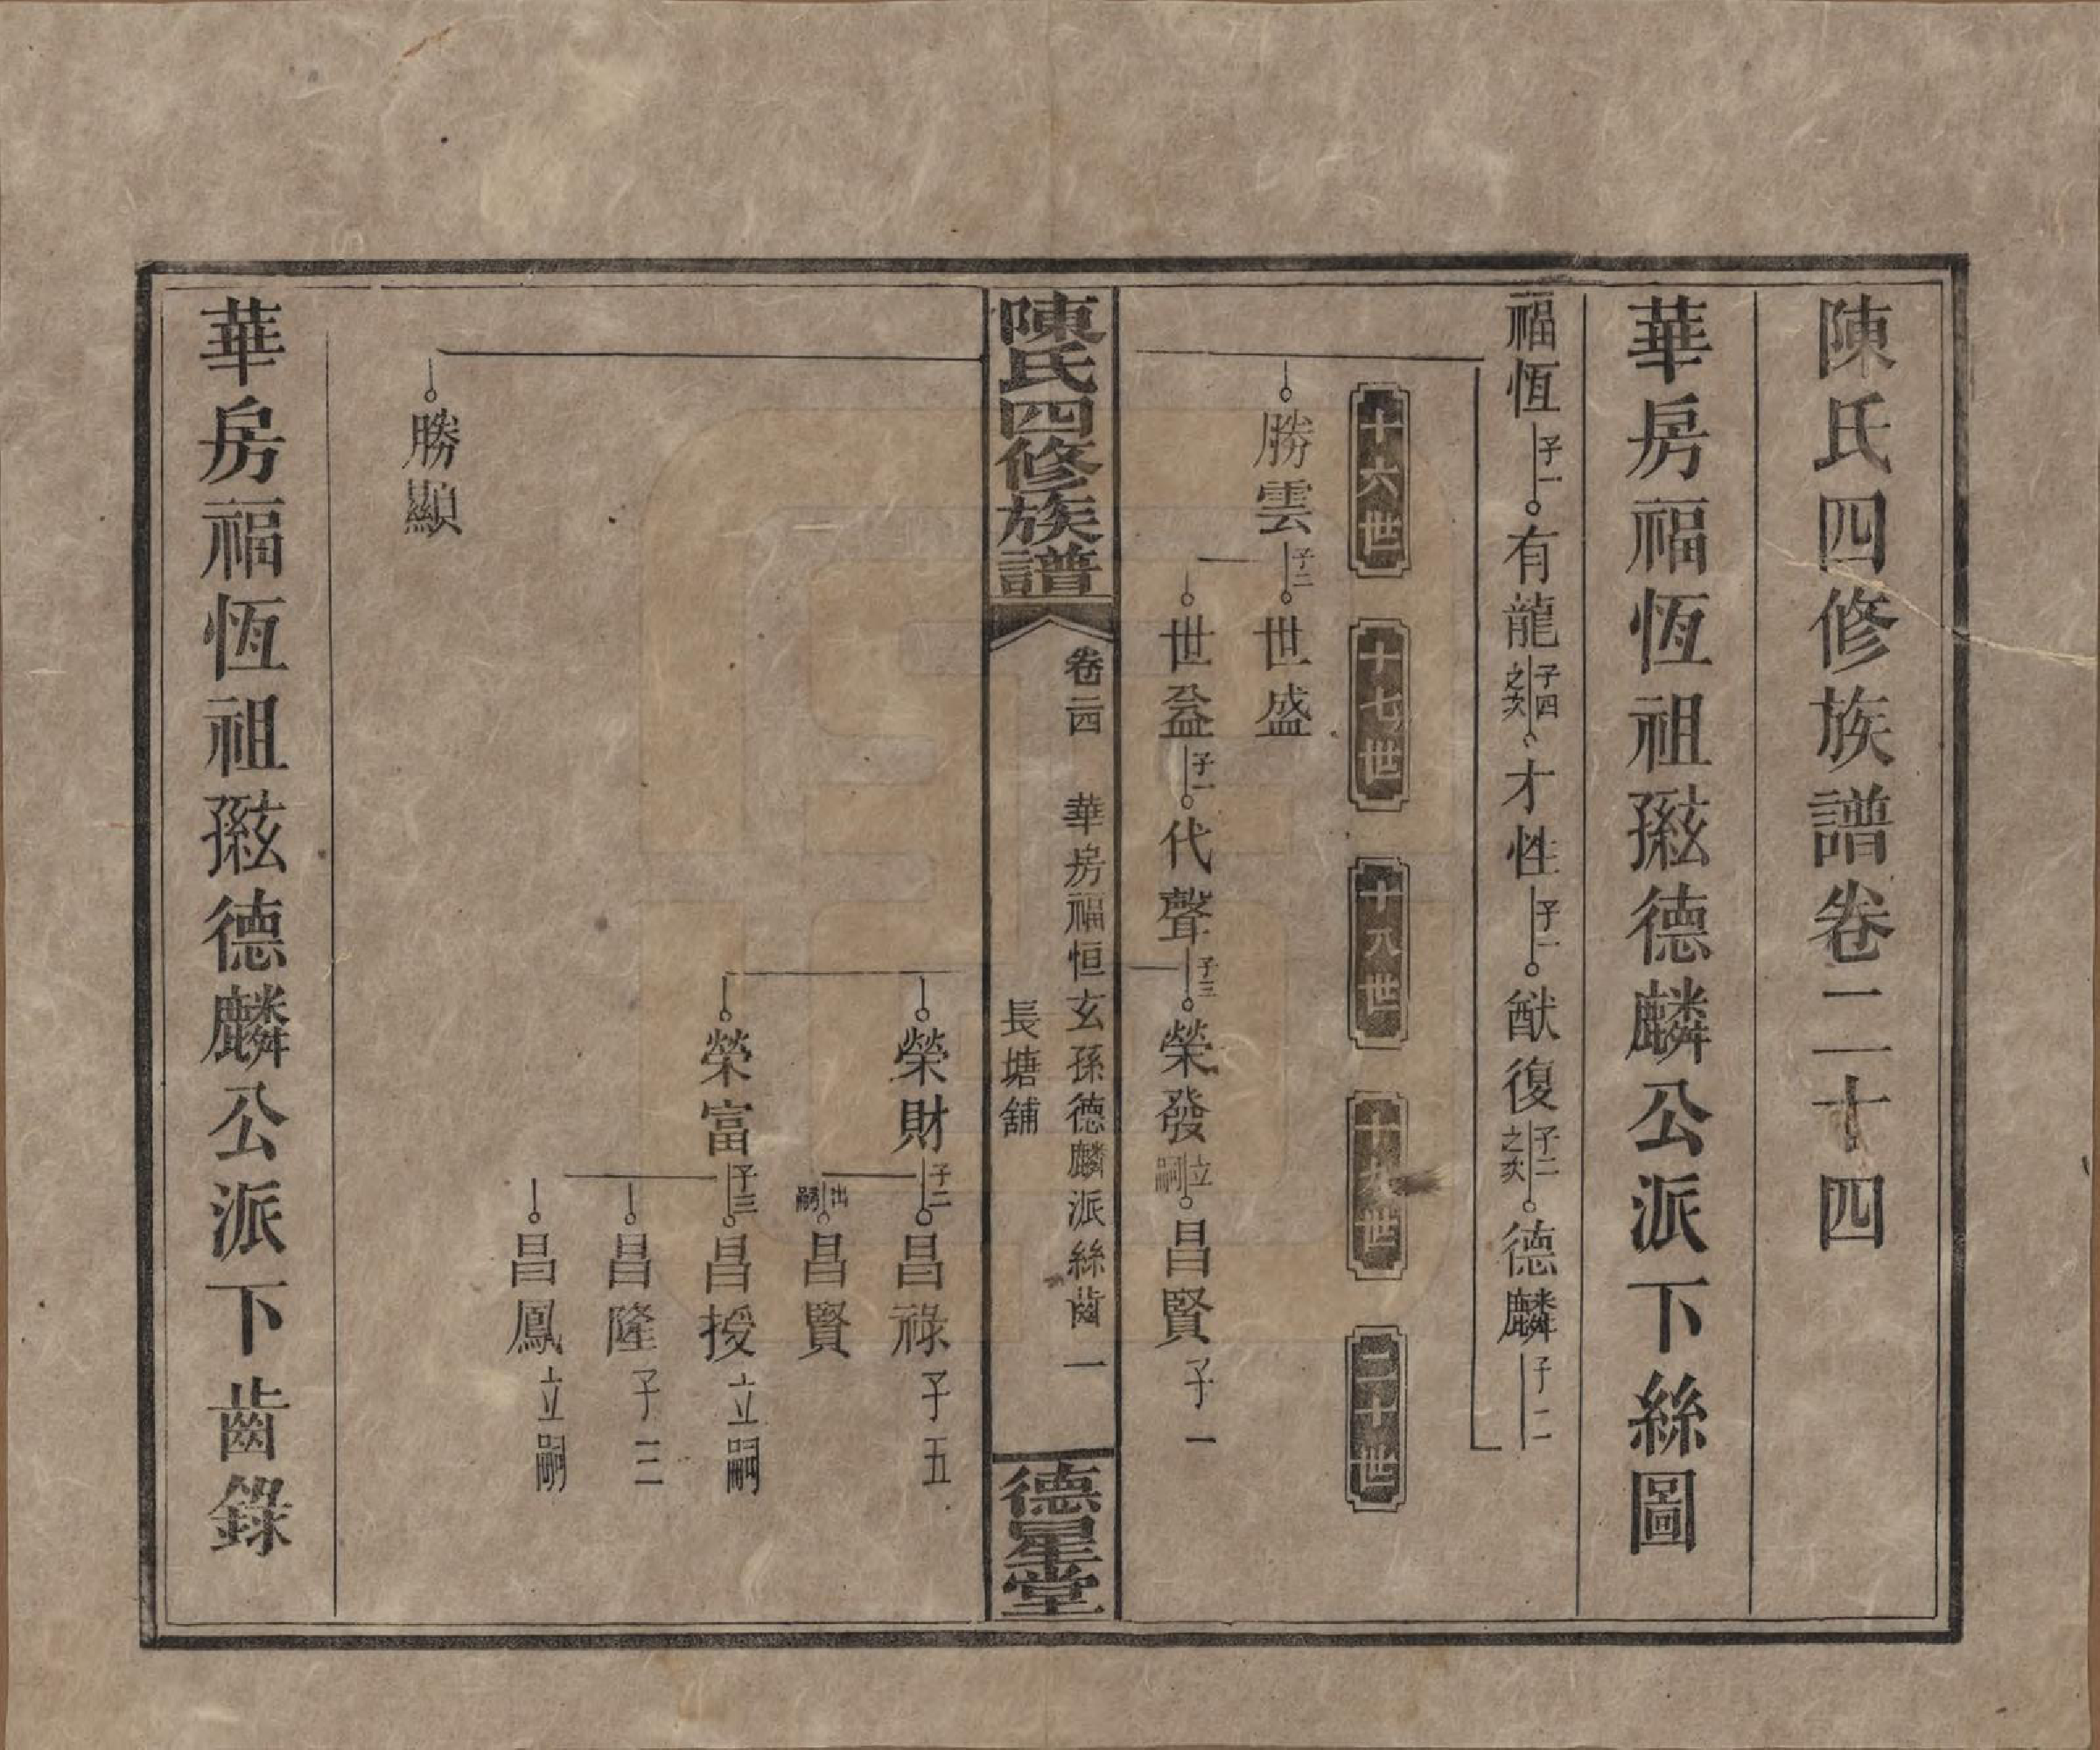 陳氏四修族譜卷二十四
華房福恆祖𤣥孫德麟公派下絲圖
福恆 子一 有龍 子四之次 才性 子一 猷復 子二之次 德麟 子二
十六世 十七世 十八世 十九世 二十世
勝雲 子二 世盛
世益 子一 代聲 子三 榮發 立嗣 昌賢 子一
陳氏四修族譜 卷二四 華房福恒玄孫德麟派絲齒 一 德星堂
長塘舖
榮財 子二 昌祿 子五
出嗣 昌賢
榮富 子三 昌授 立嗣
昌隆 子三
昌鳳 立嗣
勝顯
華房福恆祖𤣥孫德麟公派下齒錄